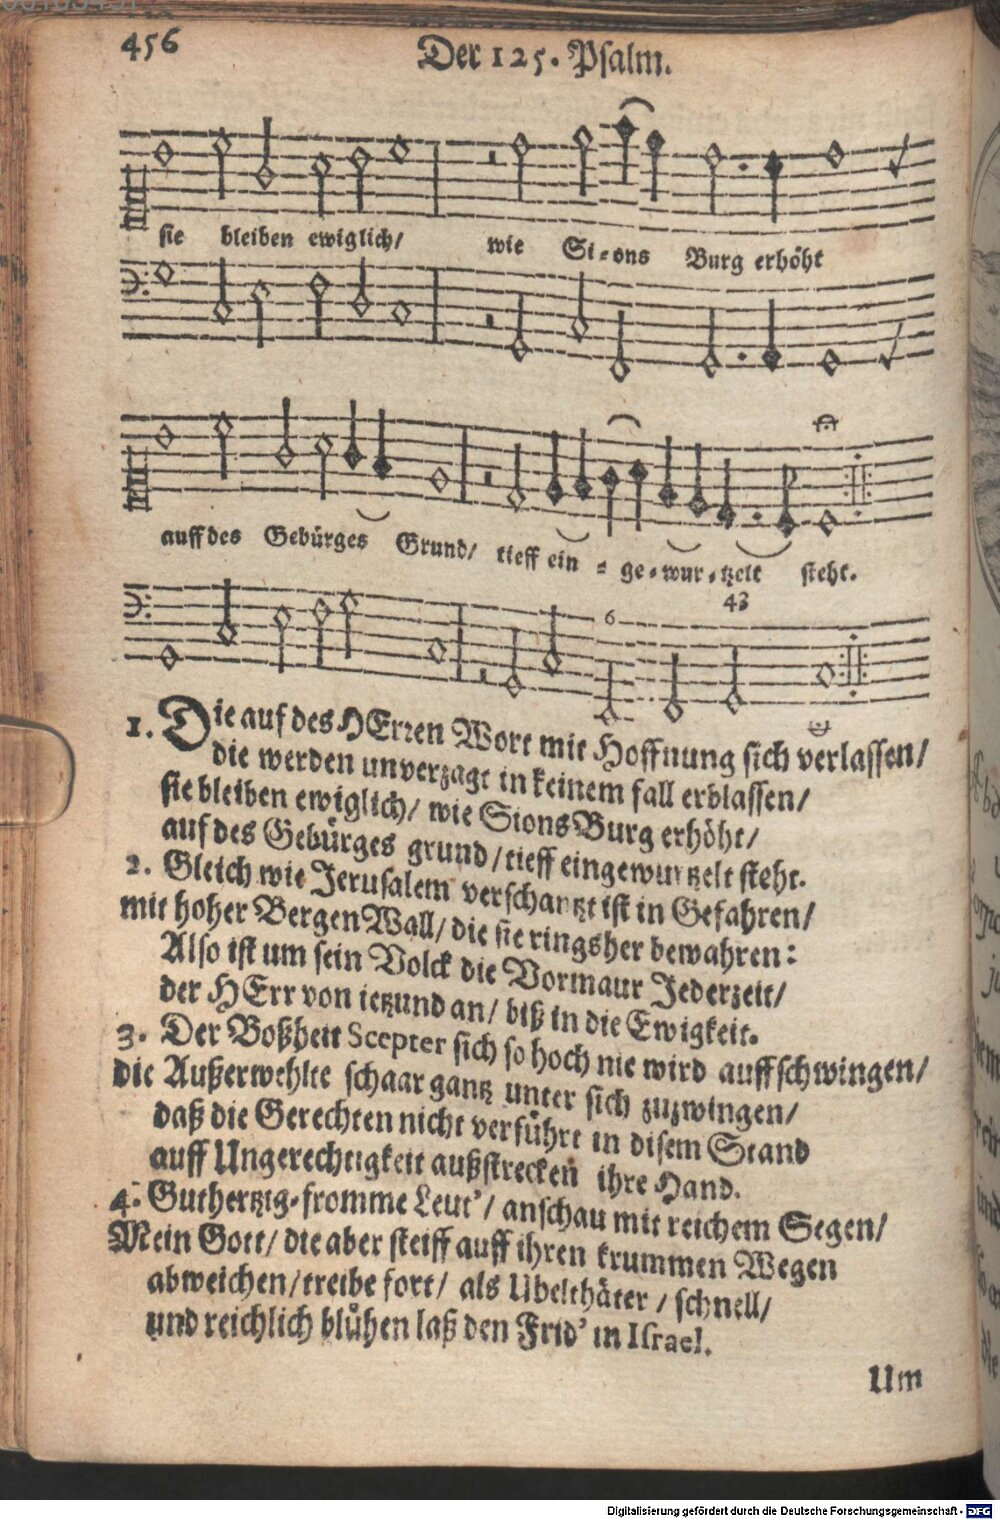 456
Der 125. Psalm.
sie bleiben ewiglich/ wie Si=ons Burg erhöht
auff des Gebürges Grund/ tieff ein = ge=wur=tzelt steht.
6 43
1. Die auf des HErren Wort mit Hoffnung sich verlassen/
die werden unverzagt in keinem fall erblassen/
sie bleiben ewiglich/ wie Sions Burg erhöht/
auf des Gebürges grund/ tieff eingewurtzelt steht.
2. Gleich wie Jerusalem verschantzt ist in Gefahren/
mit hoher Bergen Wall/ die sie ringsher bewahren:
Also ist um sein Volck die Vormaur Jederzeit/
der HErr von ietzund an/ biß in die Ewigkeit.
3. Der Boßheit Scepter sich so hoch nie wird auffschwingen/
die Außerwehlte schaar gantz unter sich zuzwingen/
daß die Gerechten nicht verführt in disem Stand
auff Ungerechtigkeit außstrecken ihre Hand.
4. Guthertzig=fromme Leut'/ anschau mit reichem Segen/
Mein Gott/ die aber steiff auff ihren krummen Wegen
abweichen/ treibe fort/ als Ubelthäter/ schnell/
und reichlich blühen laß den Frid' in Israel.
Um
Digitalisierung gefördert durch die Deutsche Forschungsgemeinschaft - DFG